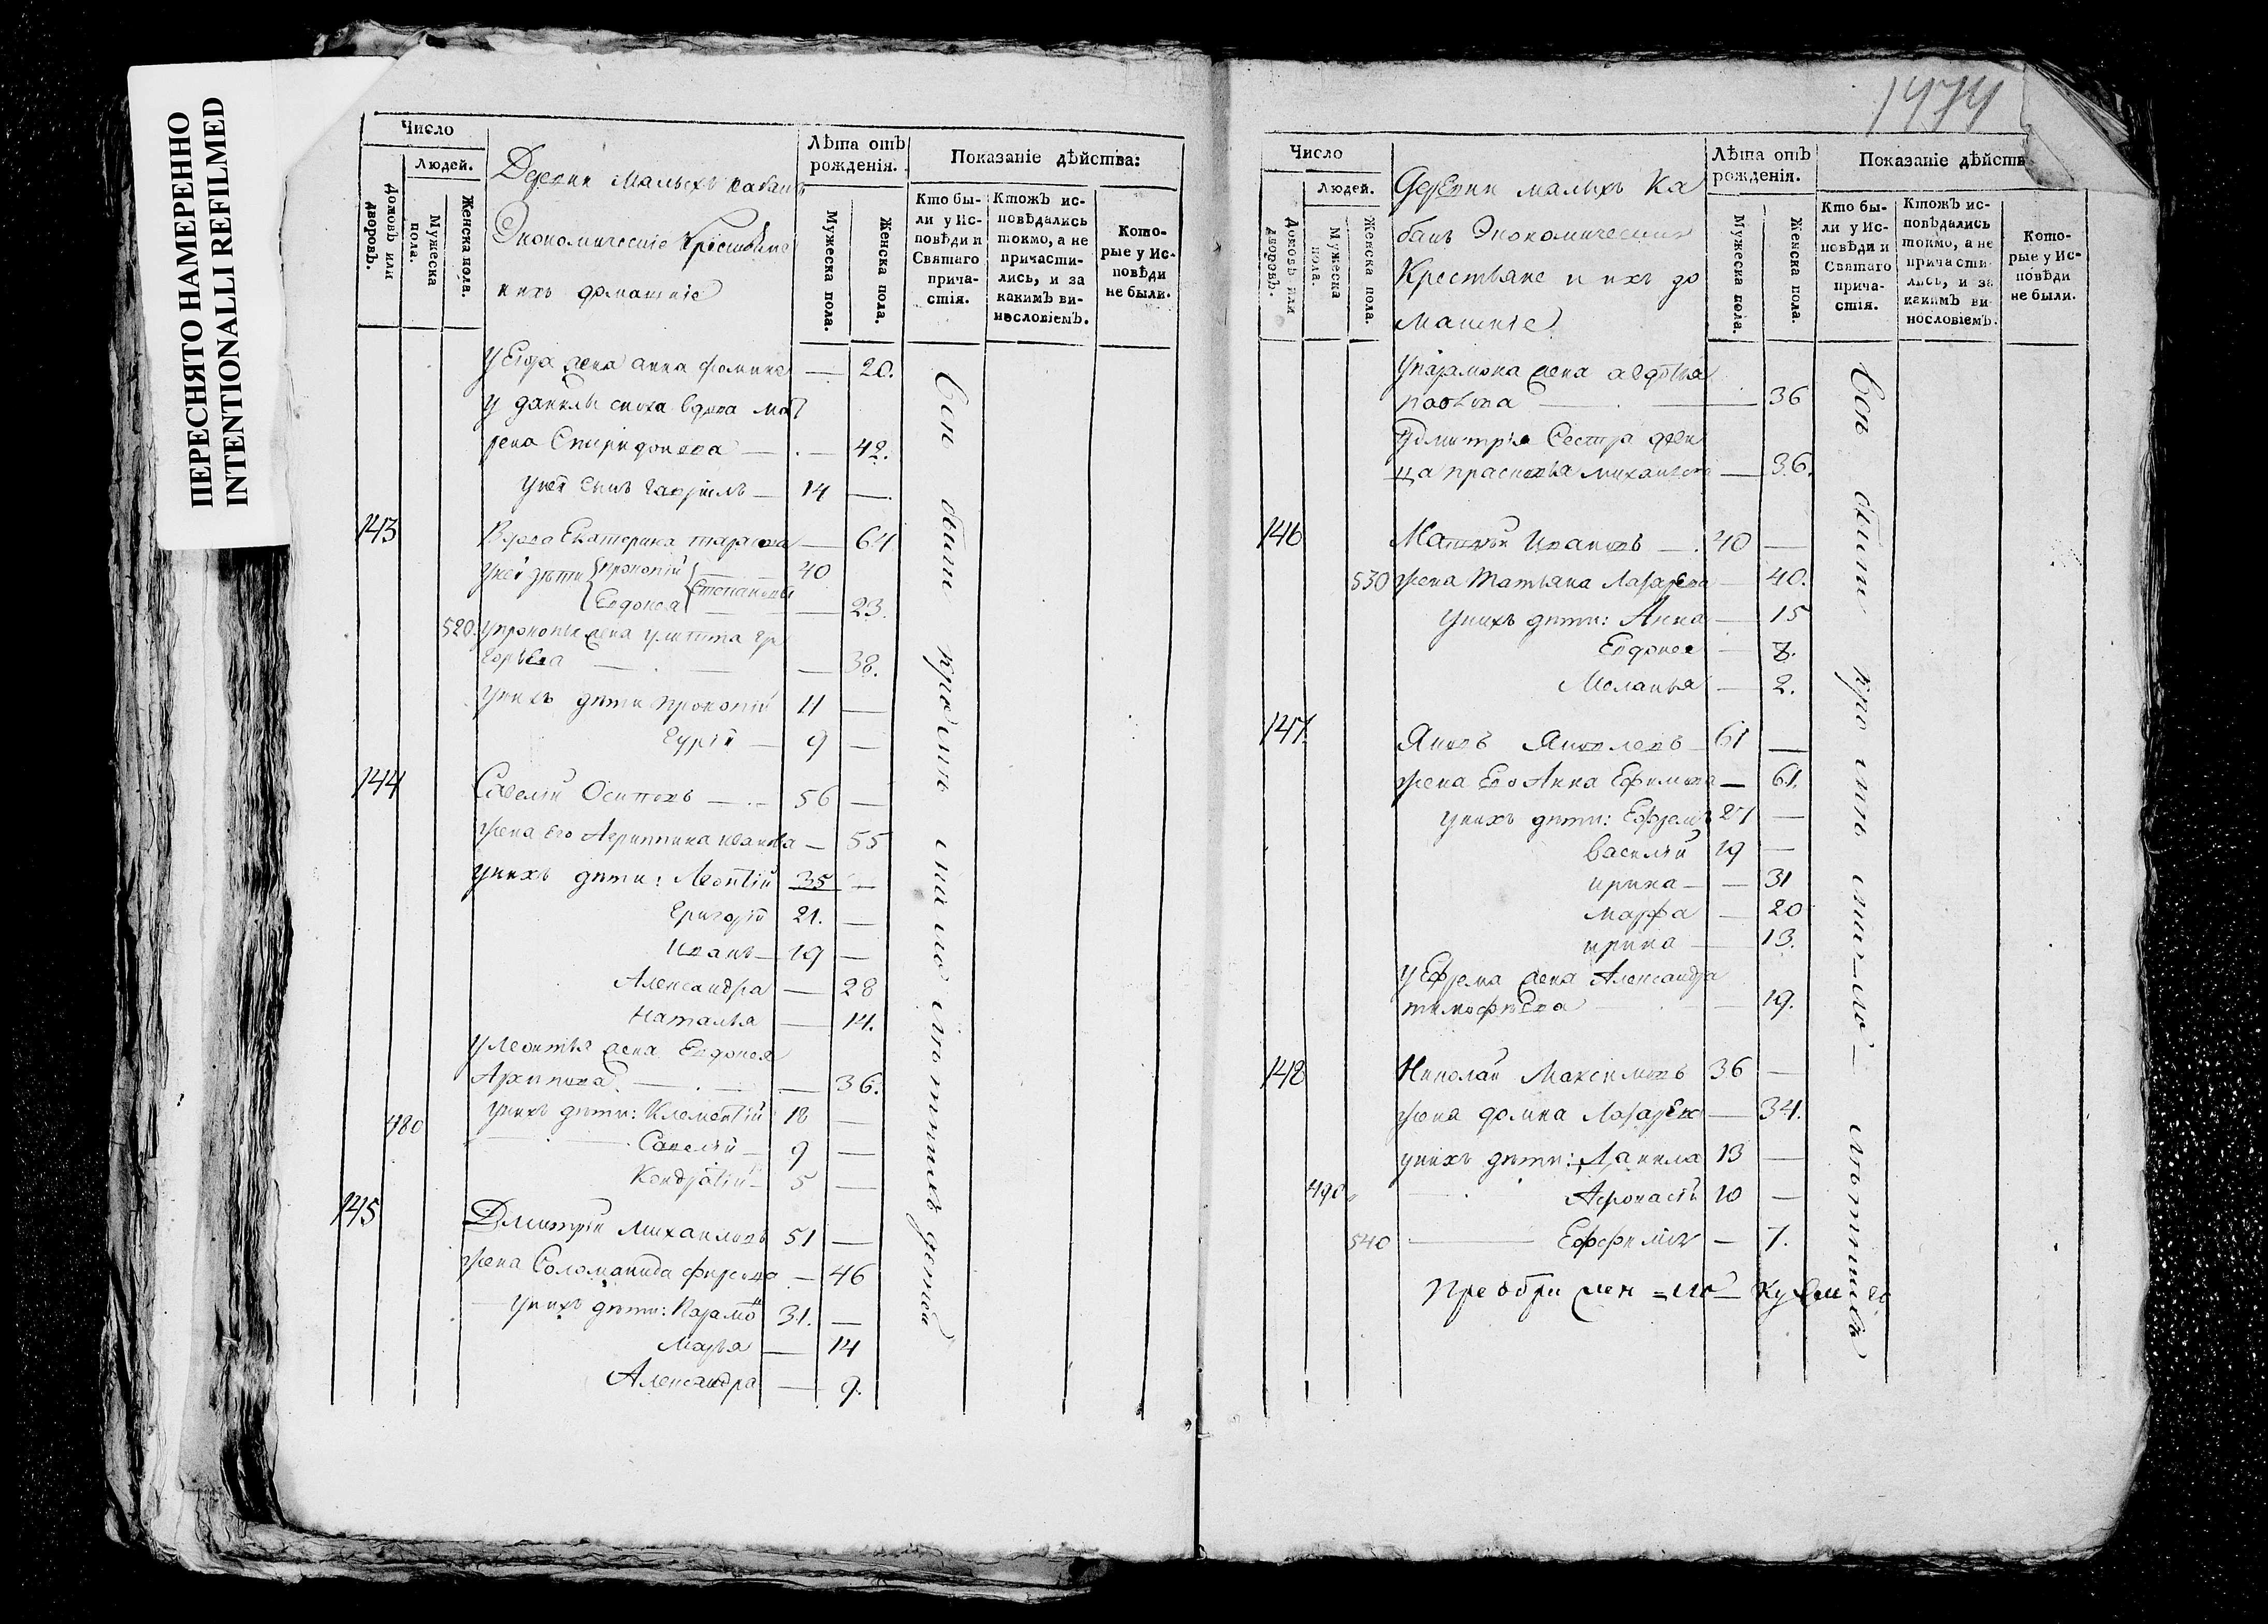 ПЕРЕСНЯТО НАМЕРЕННО
INTENTIONALLI REFILMED
Число
Людей.
Домовъ или дворовъ.
Мужеска пола.
Женска пола.
Деревни Малыхъ Кабанъ
Экономическіе Крестьяне
и ихъ домашніе
Лѣта отъ рожденія.
Мужеска пола.
Женска пола.
Показаніе дѣйства:
Кто были у Исповѣди и Святаго причастія.
Ктожъ исповѣдались токмо, а не причастились, и за какимъ винословіемъ.
Которые у Исповѣди не были.
жена анна фомина — 20.
у данилы сноха вдова мат
рена Спиридонова — 42.
унея сынъ гаврилъ — 14 —
143 Вдова Екатерина тарасова — 64
унея дѣти прокопій 40
Евдокея Степановы — 23.
520. упрокопья жена улитта гри
горьева — 38.
унихъ дѣти прокопій 11 —
гурій — 9 —
144 Савелій Осиповъ — 56 —
жена его Агриппина иванова — 55
унихъ дѣти: Леонтій 35 —
григорій 21. —
Иванъ — 19 —
Александра — 28
наталья — 14.
улеонтья жена Евдокея
Архипова — 36.
480 унихъ дѣти: Клементій 18 —
Савелій — 9 —
Кондратій — 5 —
145 Дмитрій михаиловъ 51 —
жена Соломанида — 46
унихъ дѣти: Парамо 31. —
марья — 14
Александра — 9.
1474
Число
Людей.
Домовъ или дворовъ.
Мужеска пола.
Женска пола.
Деревни малыхъ Ка
банъ Экономическія
Крестьяне и ихъ до
машніе
Лѣта отъ рожденія.
Мужеска пола.
Женска пола.
Показаніе дѣйств
Кто были у Исповѣди и Святаго причастія.
Ктожъ исповѣдались токмо, а не причастились, и за какимъ винословіемъ.
Которые у Исповѣди не были.
упарамона жена авдотья
— 36
удмитрія Сестра дѣви
ца прасковья михаилова — 36.
146 Матвѣй Ивановъ — 40 —
530 жена Татьяна Лазарева — 40.
унихъ дѣти: Анна — 15
Евдокея — 8.
Меланья — 2.
147. Яковъ Яковлевъ — 61 —
жена Его Анна Ефимова — 61.
унихъ дѣти: Ефремъ 27 —
василій 19 —
ирина — 31
марфа — 20
ирина — 13.
у Ефрема жена Александра
тимофѣева — 19.
148 Николай Максимовъ 36 —
жена домна Лазарева — 34.
унихъ дѣти: Данила 13 —
490 Афонасій 10 —
540 Ефимія — 7.